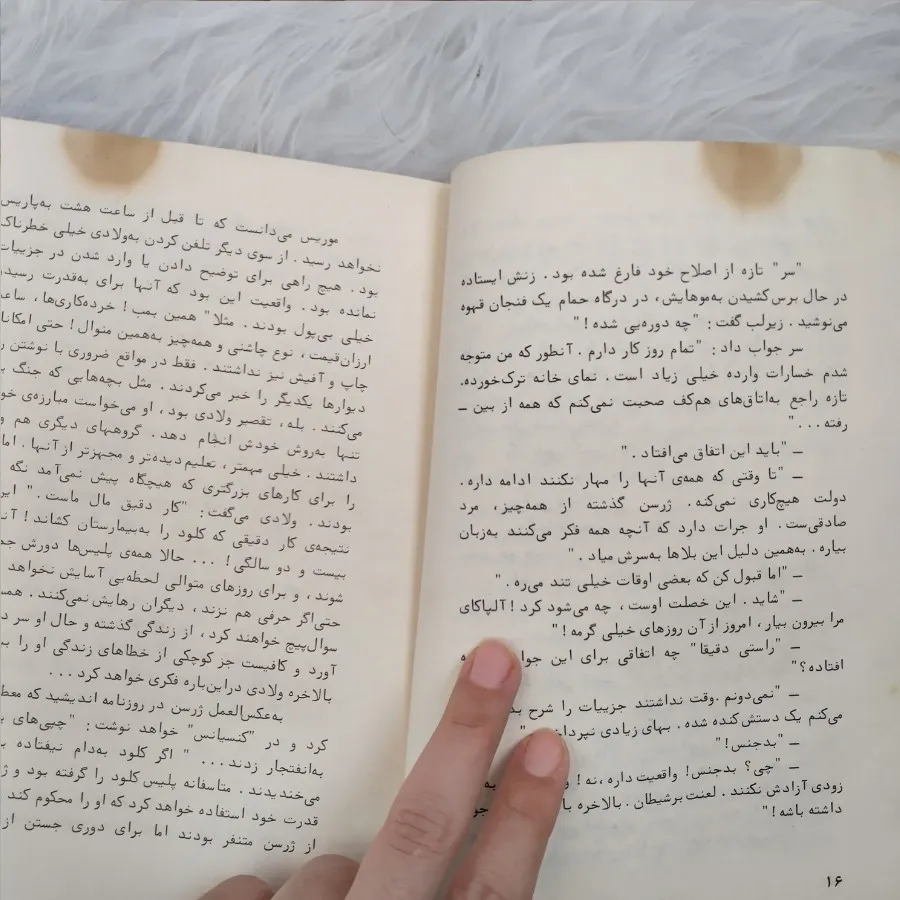 "سر" تازه از اصلاح خود فارغ شده بود . زنش ایستاده
در حال برس کشیدن به‌موهایش، در درگاه حمام یک فنجان قهوه
می‌نوشید . زیرلب گفت : "چه دوره‌یی شده ! "
سر جواب داد : "تمام روز کار دارم . آنطور که من متوجه
شدم خسارات وارده خیلی زیاد است . نمای خانه ترک‌خورده.
تازه راجع به‌اتاق‌های هم‌کف صحبت نمی‌کنم که همه از بین ــ
رفته . . . "
ــ "باید این اتفاق می‌افتاد . "
ــ "تا وقتی که همه‌ی آنها را مهار نکنند ادامه داره .
دولت هیچ‌کاری نمی‌کنه . ژرسن گذشته از همه‌چیز، مرد
صادقی‌ست . او جرات دارد که آنچه همه فکر می‌کنند به‌زبان
بیاره . به‌همین دلیل این بلاها به‌سرش میاد . "
ــ "اما قبول کن که بعضی اوقات خیلی تند می‌ره . "
ــ "شاید . این خصلت اوست ، چه می‌شود کرد ! آلپاکای
مرا بیرون بیار ، امروز از آن روزهای خیلی گرمه ! "
ــ "راستی دقیقا" چه اتفاقی برای این
افتاده ؟ "
ــ "نمی‌دونم .وقت نداشتند جزییات را شرح
می‌کنم یک دستش کنده شده . بهای زیادی
ــ "بدجنس! "
ــ "چی؟ بدجنس! واقعیت داره ،نه !
زودی آزادش نکنند . لعنت برشیطان . بالاخره
داشته باشه ! "
۱۶
موریس می‌دانست که تا قبل از ساعت هشت به‌پاریس
نخواهد رسید . از سوی دیگر تلفن کردن به‌ولادی خیلی خطرناک
بود . هیچ راهی برای توضیح دادن یا وارد شدن در جزییات
نمانده بود . واقعیت این بود که آنها برای به‌قدرت
خیلی بی‌پول بودند . مثلا" همین بمب ! خرده‌کاری‌ها ،
ارزان‌قیمت ، نوع چاشنی و همه‌چیز به‌همین منوال ! حتی
چاپ و آفیش نیز نداشتند . فقط در مواقع ضروری با نوشتن
دیوارها یکدیگر را خبر می‌کردند . مثل بچه‌هایی که جنگ
می‌کنند . بله ، تقصیر ولادی بود ، او می‌خواست مبارزه‌ی
تنها به‌روش خودش انجام دهد . گروههای دیگری هم
داشتند . خیلی مهمتر ، تعلیم دیده‌تر و مجهزتر از آنها . اما
را برای کارهای بزرگتری که هیچگاه پیش نمی‌آمد نگه
بودند . ولادی می‌گفت : "کار دقیق مال ماست . "
نتیجه‌ی کار دقیقی که کلود را به‌بیمارستان کشاند !
بیست و دو سالگی ! . . . حالا همه‌ی پلیس‌ها دورش
شوند ، و برای روزهای متوالی لحظه‌یی آسایش نخواهد
حتی‌اگر حرفی هم نزند ، دیگران رهایش نمی‌کنند .
سوال‌پیچ خواهند کرد ، از زندگی گذشته و حال او سر
آورد و کافیست جز کوچکی از خطاهای زندگی او را
بالاخره ولادی دراین‌باره فکری خواهد کرد . . .
به‌عکس‌العمل ژرسن در روزنامه اندیشید که
کرد و در "کنسیانس" خواهد نوشت : "چپی‌های
به‌انفتجار زدند . . . " اگر کلود به‌دام نیفتاده
می‌خندیدند . متاسفانه پلیس کلود را گرفته بود و
قدرت خود استفاده خواهد کرد که او را محکوم کند
از ژرسن متنفر بودند اما برای دوری جستن از